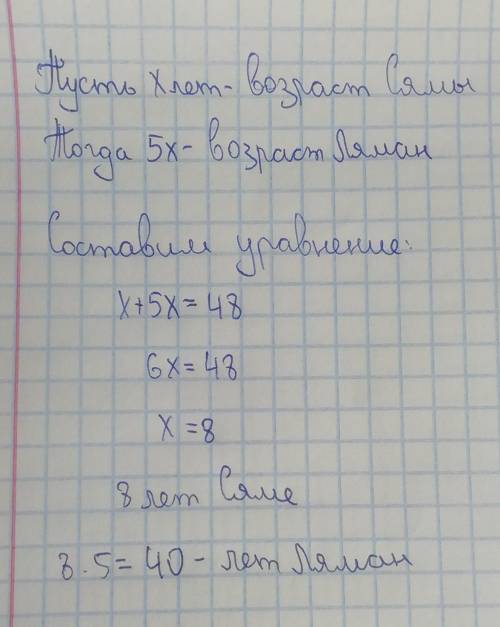 Пусть x лет - возраст Сямы
Тогда 5x - возраст Ляман
Составим уравнение:
x+5x=48
6x=48
x=8
8 лет Сяме
8·5=40 - лет Ляман